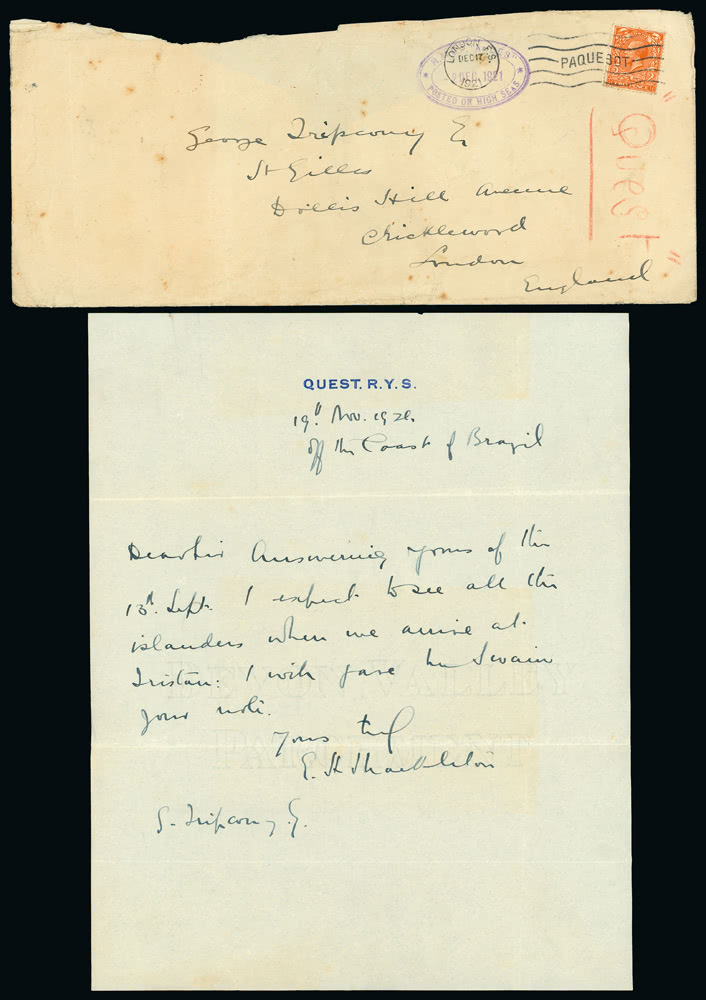 LONDON F.S.
DEC 17
1921
DEC 1921
POSTED ON HIGH SEAS
PAQUEBOT
"Quest"
George Tripconny Esq
St Gilles
Dollis Hill Avenue
Cricklewood
London
England
QUEST. R.Y.S.
19th Nov. 1921.
off the Coast of Brazil
Dear Sir Answering yours of the
13th. Sept. I expect to see all the
islanders when we arrive at
Tristan: I will give Swain
your note.
Yours
E. H Shackleton
G. Tripconny